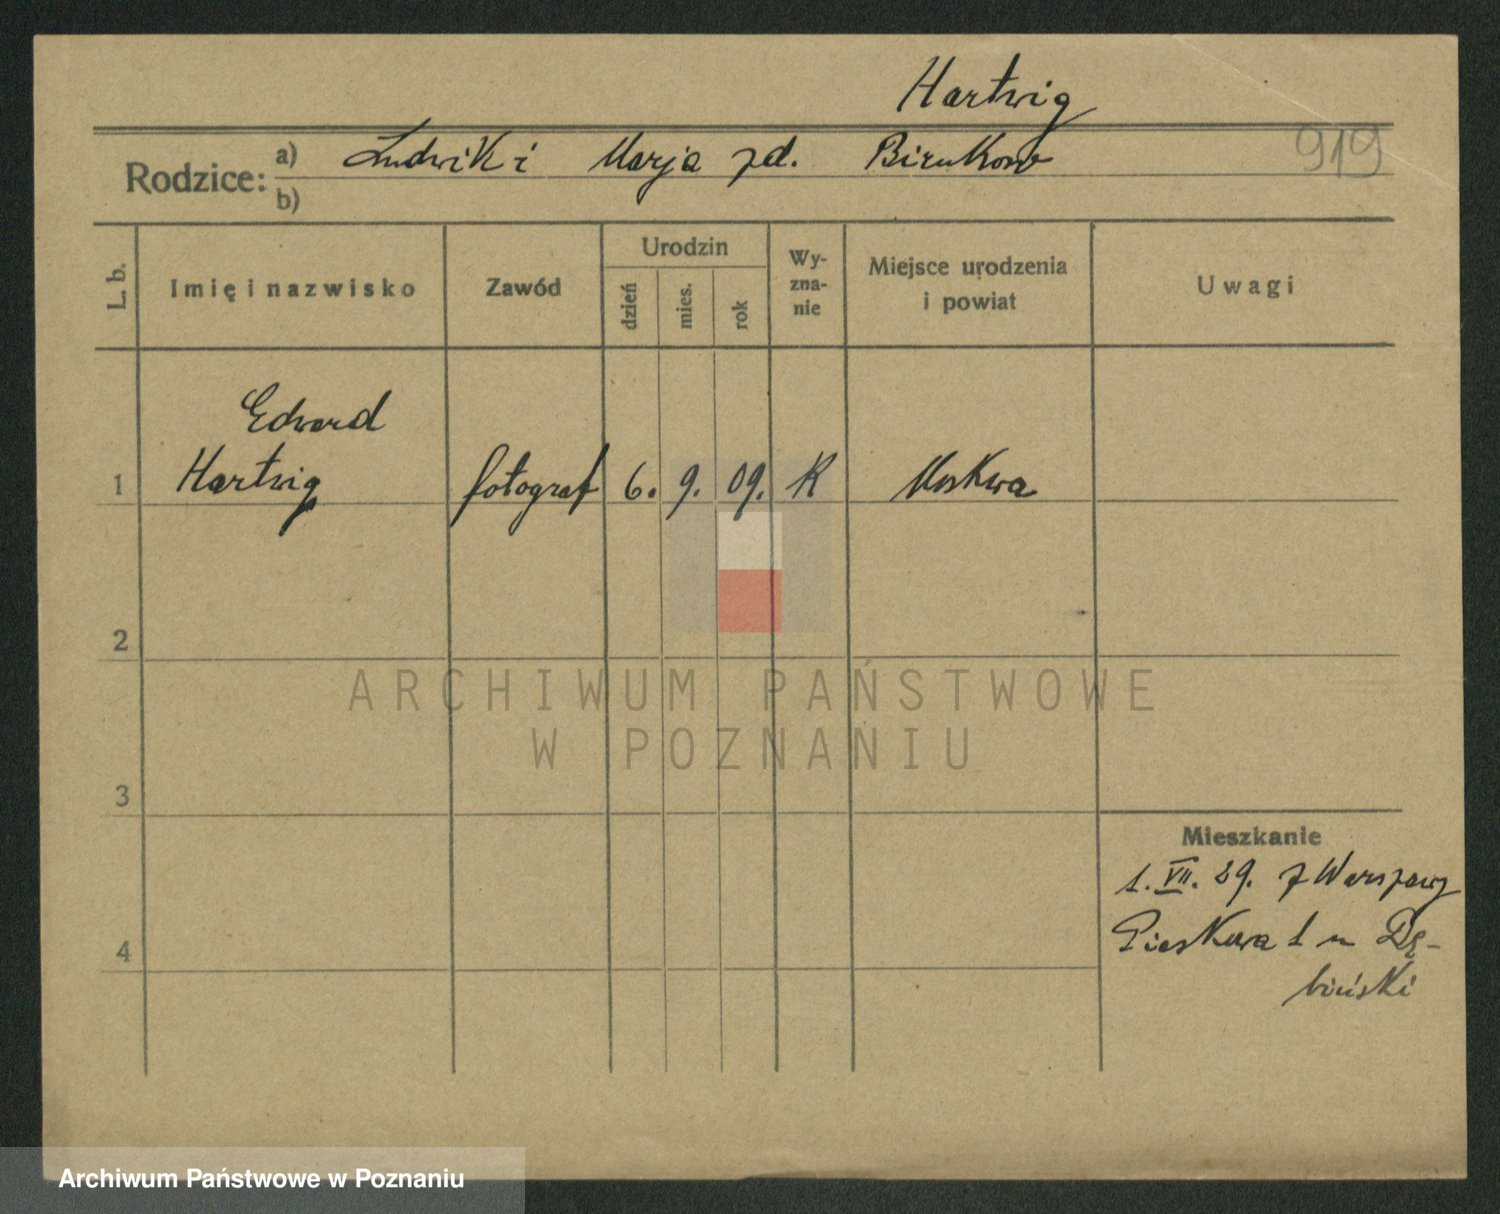 Hartwig
919
Rodzice:
a) Ludwik i Marja zd. Birukow
b)
L. b.
Imię i nazwisko
Zawód
Urodzin
dzień
mies.
rok
Wy-
zna-
nie
Miejsce urodzenia
i powiat
Uwagi
Edward
1 Hartwig fotograf 6. 9. 09. K Moskwa
2
3
4
Mieszkanie
1. VII. 29. z Warszawy
Pieskowa 1 u Dę-
biński
ARCHIWUM PAŃSTWOWE
W POZNANIU
Archiwum Państwowe w Poznaniu